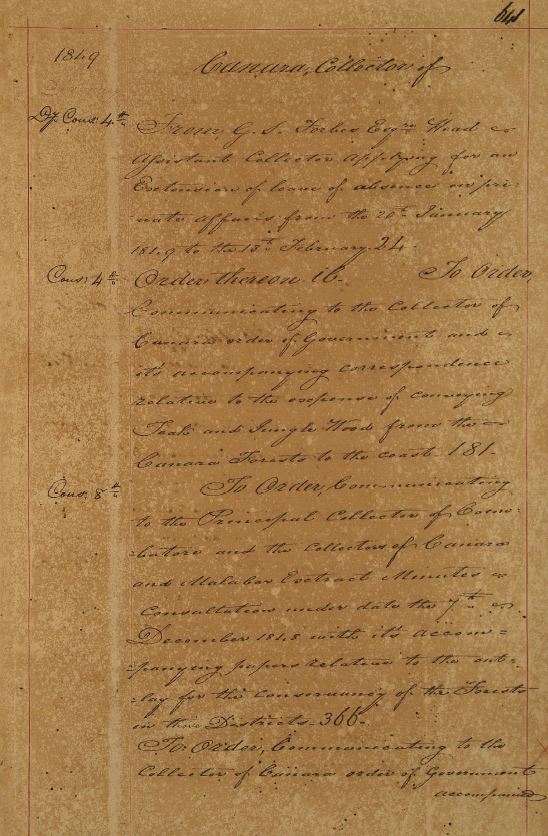 64
1849
Canara, Collector of
Dy. Cons: 4th
From, G. S. Forbes Esqre Head
Assistant Collector Applying for an
Extension of leave of absence on pri-
vate affairs from the 20th January
1849 to the 13th February. 24.
Cons: 4th
Order thereon. 16. To Order,
Communicating to the Collector of
Canara order of Government and
it's accompanying correspondence
relative to the expense of conveying
Teak and Jungle Wood from the
Canara Forests to the coast. 181.
Cons: 8th
To Order, Communicating
to the Principal Collector of Coim-
-batore and the Collectors of Canara
and Malabar Extract Minutes
Consultation under date the 7th
December 1848 with it's accom=
-panying papers relative to the out-
-lay for the conservancy of the Forests
in those Districts. 366.
To Order, Communicating to the
Collector of Canara order of Government
accompanied